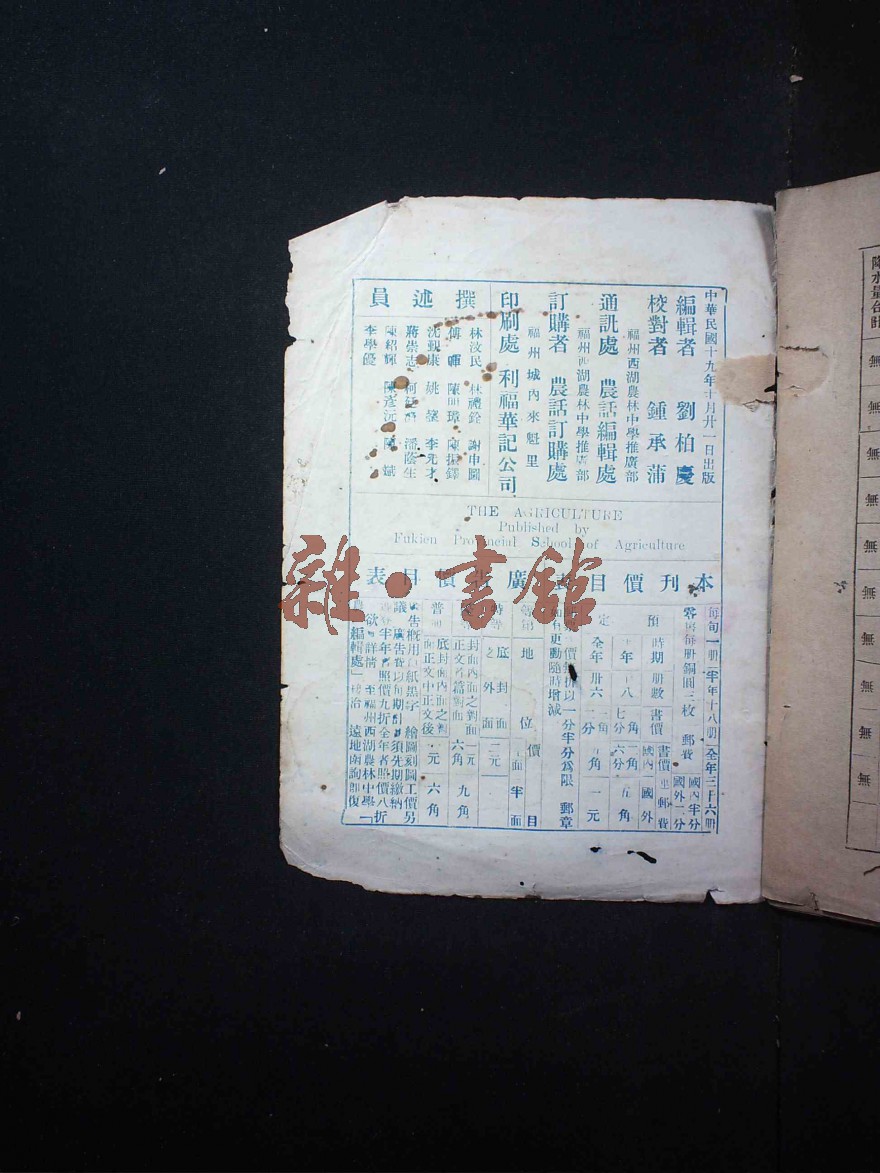 中華民國十九年十月卅一日出版
編輯者 劉柏慶
校對者 鍾承蒲
福州西湖農林中學推廣部
通訊處 農話編輯處
福州西湖農林中學推廣部
訂購者 農話訂購處
福州城內來魁里
印刷處 利福華記公司
撰述員
林汶民 林禮銓 謝申圖
傅暉
沈覲康 姚 李先才
蔣崇志 潘蔭生
陳紹輝 陳彥沅 陳斌
李學優
THE AGRICULTURE
Published by
Fukien Provincial School of Agriculture
本刊價目 廣告價目表
每旬一册 半年十八册 全年三十六册
零售每册銅圓三枚 郵費 國內半分 國外一分
預定
時期 册數 書價 書價連郵費
國內 國外
半年 十八 五角
全年 卅六 一元
郵章
更動隨時增減
以一分半分為限
地位 價目
面 半面
底封面之外面 二元
封面內面之對面
正文首篇對面 元六角 九角
普通
底封面內面之對面
正文中正文後 一元 六角
廣告概用白紙黑字 繪圖刻圖工價另議
廣告費以每期計 須先期繳納
半年者照價九折全年者照價八折
欲 詳情 至福州西湖農林中學「農話編輯處」接洽 遠地函詢即復
雜·書館
降水量合計
無
無
無
無
無
無
無